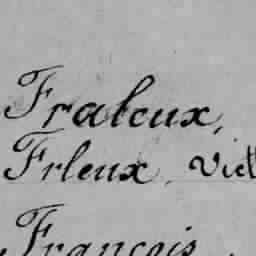 Fraleux,
Frleux, Viel
François.